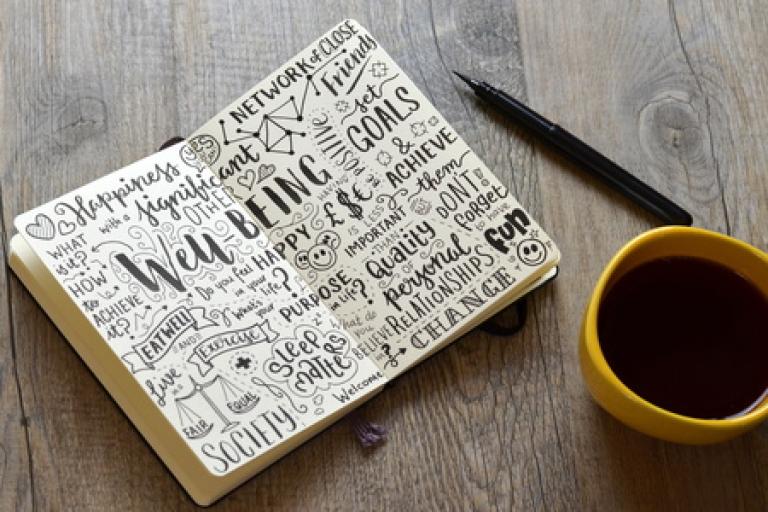 Happiness
with a significant
OTHER
YES
WHAT
is it?
HOW
to
ACHIEVE
it?
Well BEING
Do you feel HAPPY
in your life?
What's your PURPOSE
in life?
EAT WELL
AND
Exercise
Sleep
MATTERS
Live in a
FAIR
EQUAL
SOCIETY
Welcome
CHANGE
NETWORK of CLOSE
Friends
POSITIVE
set
GOALS
&
ACHIEVE
them
HAVING
£$€
IS LESS
IMPORTANT
THAN
Quality
personal
RELATIONSHIPS
DON'T
forget
HAVE
fun
What do
you
BELIEVE
in?